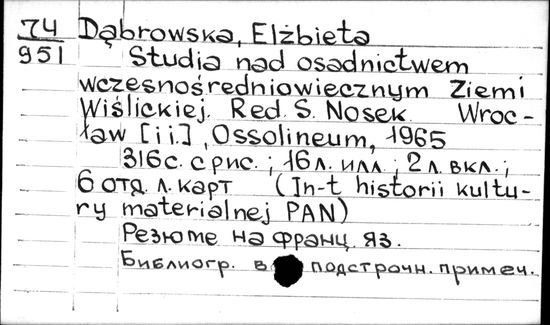 74 Dąbrowska, Elżbieta
951 Studia nad osadnictwem
wczesnośredniowiecznym Ziemi
Wiślickiej. Red. S. Nosek. Wroc-
ław [i i.], Ossolineum, 1965
316 с. с рис.; 16 л. илл.; 2 л. вкл.;
6 отд. л. карт (In-t historii kultu-
ry materialnej PAN)
Резюме на франц. яз.
Библиогр. в подстрочн. примеч.